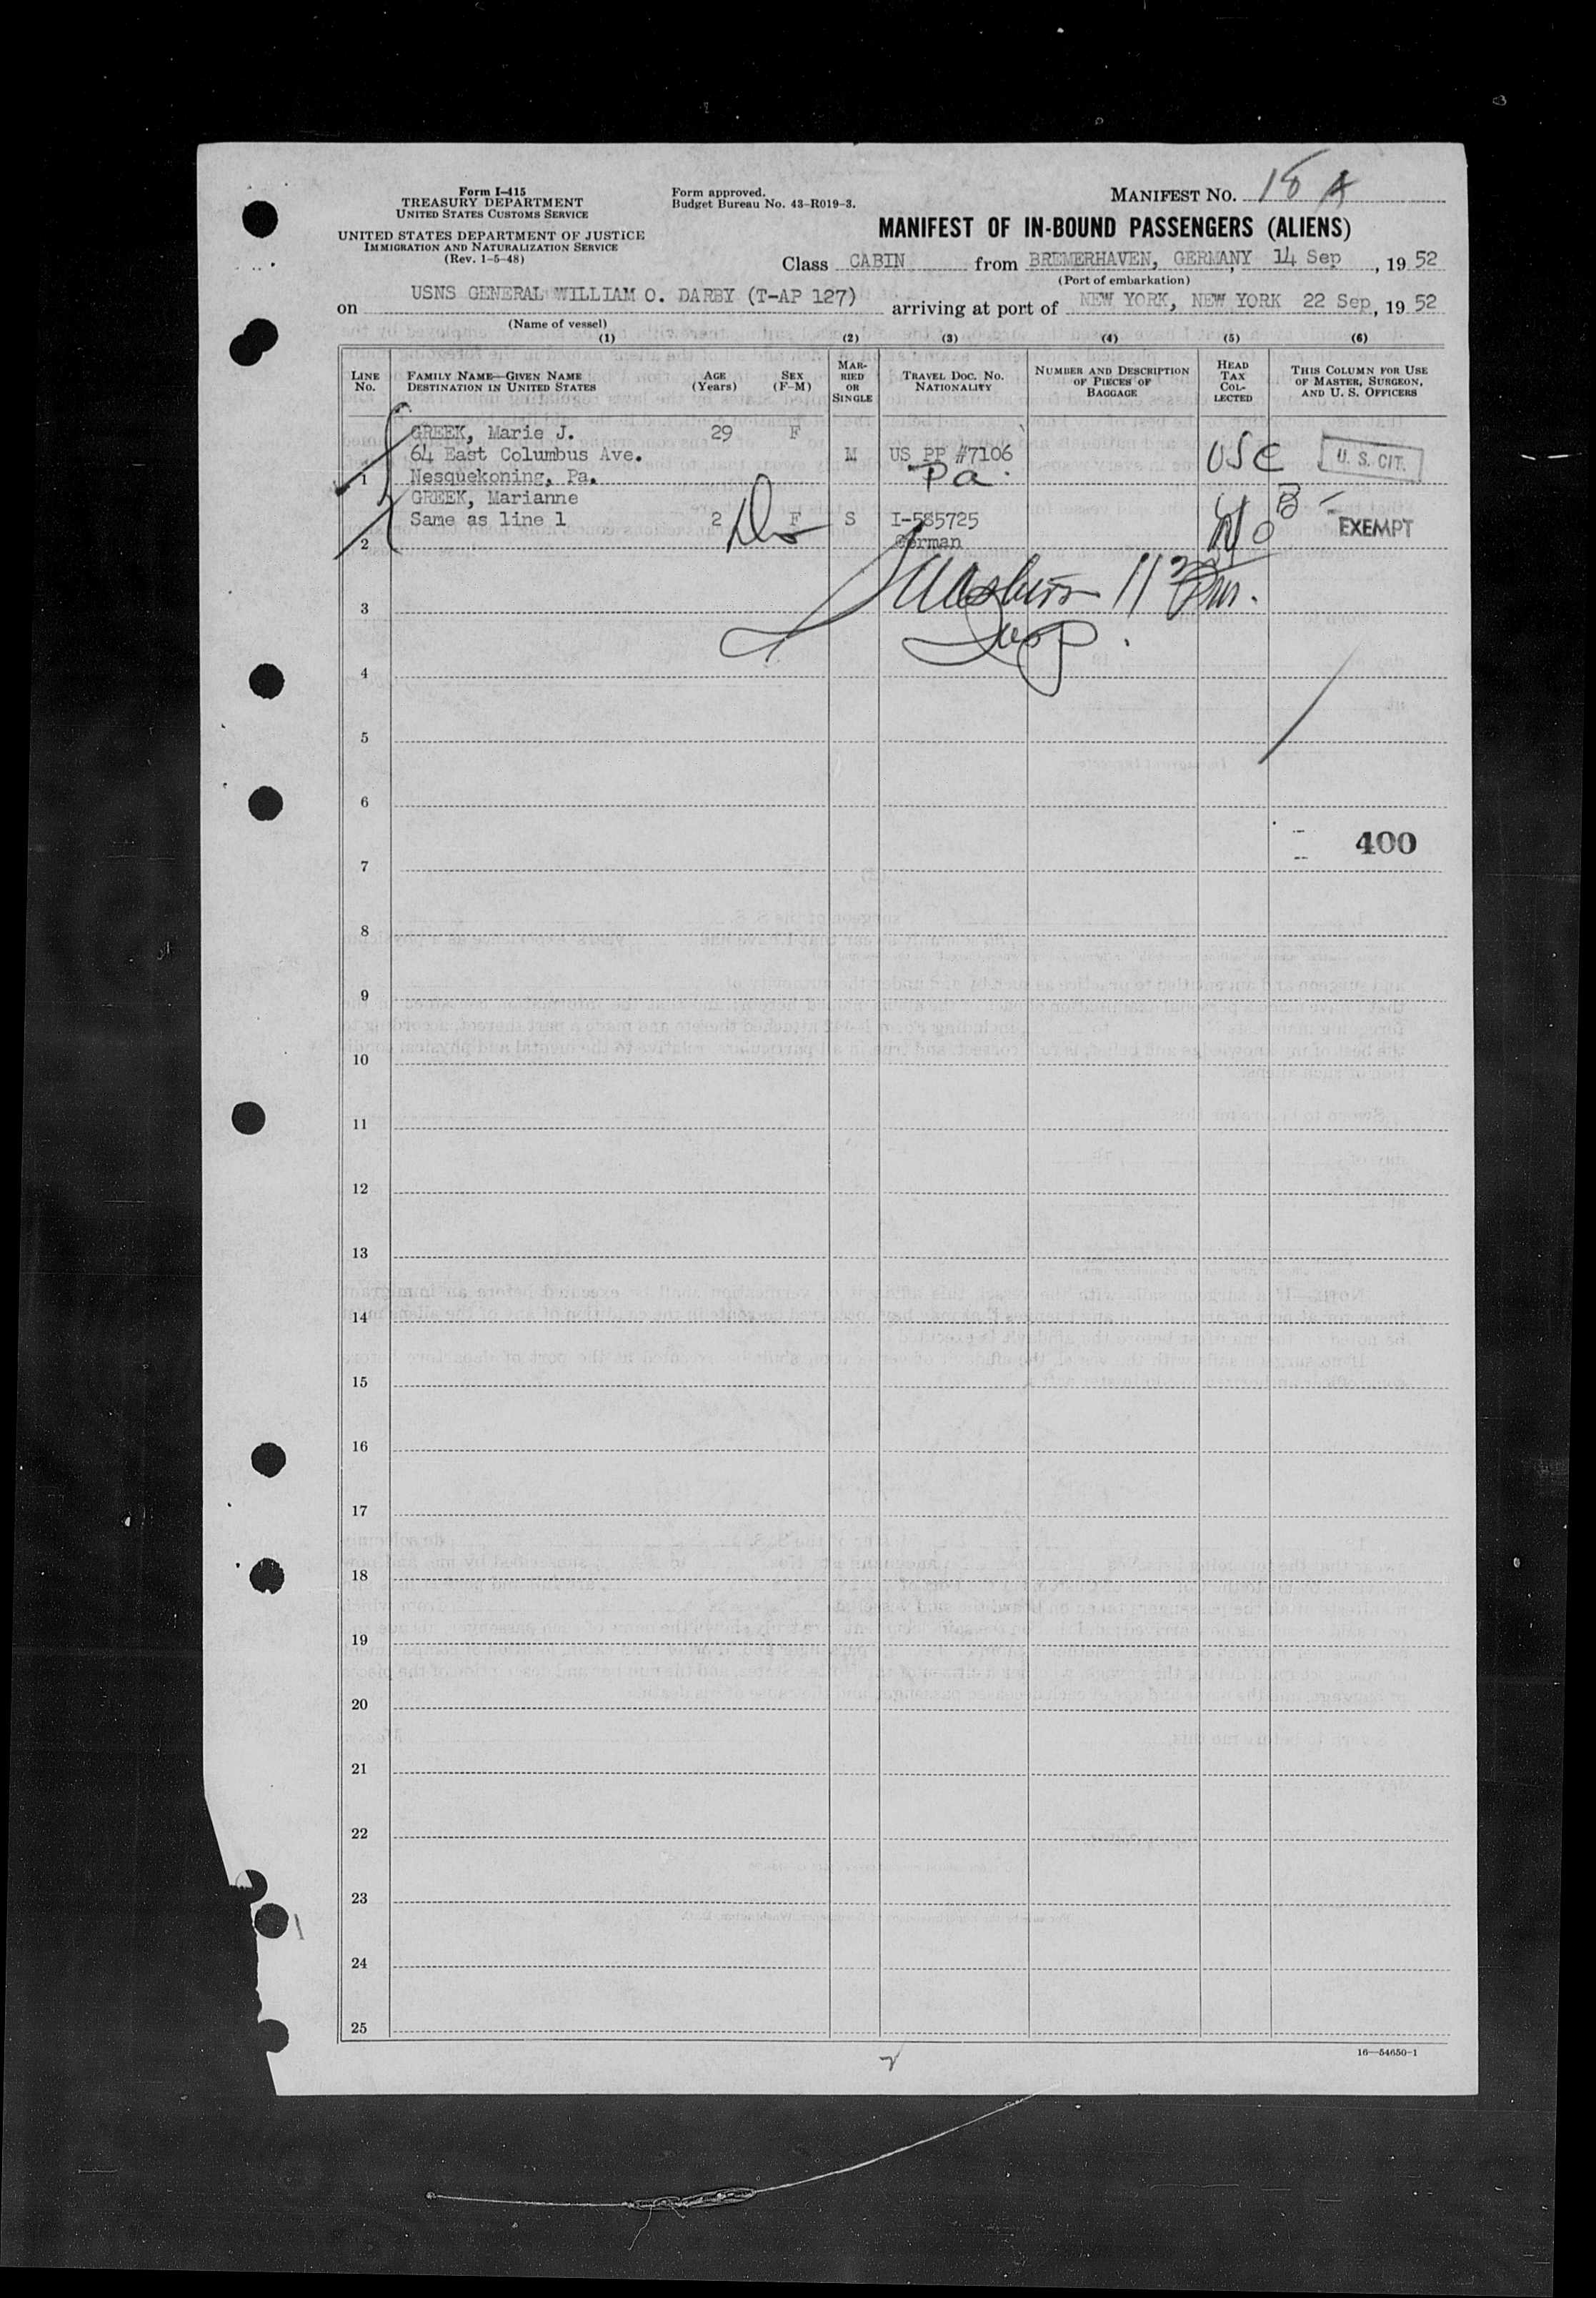 Form I-415
TREASURY DEPARTMENT
UNITED STATES CUSTOMS SERVICE
UNITED STATES DEPARTMENT OF JUSTICE
IMMIGRATION AND NATURALIZATION SERVICE
(Rev. 1-5-48)
Form approved.
Budget Bureau No. 43-R019-3.
MANIFEST NO. 18 A
MANIFEST OF IN-BOUND PASSENGERS (ALIENS)
Class CABIN from BREMERHAVEN, GERMANY, 14 Sep, 19 52
(Port of embarkation)
on USNS GENERAL WILLIAM O. DARBY (T-AP 127) arriving at port of NEW YORK, NEW YORK 22 Sep, 19 52
(Name of vessel)
(1) (2) (3) (4) (5) (6)
LINE No. FAMILY NAME—GIVEN NAME DESTINATION IN UNITED STATES AGE (Years) SEX (F-M) MARRIED OR SINGLE TRAVEL DOC. NO. NATIONALITY NUMBER AND DESCRIPTION OF PIECES OF BAGGAGE HEAD TAX COLLECTED THIS COLUMN FOR USE OF MASTER, SURGEON, AND U. S. OFFICERS
GREEK, Marie J. 29 F
64 East Columbus Ave. M US PP #7106 USC U. S. CIT.
1 Nesquekoning, Pa. Pa.
GREEK, Marianne
Same as line 1 2 F S I-585725 EXEMPT
2 German
3
Insp.
4
5
6
400
7
8
9
10
11
12
13
14
15
16
17
18
19
20
21
22
23
24
25
16—54650-1